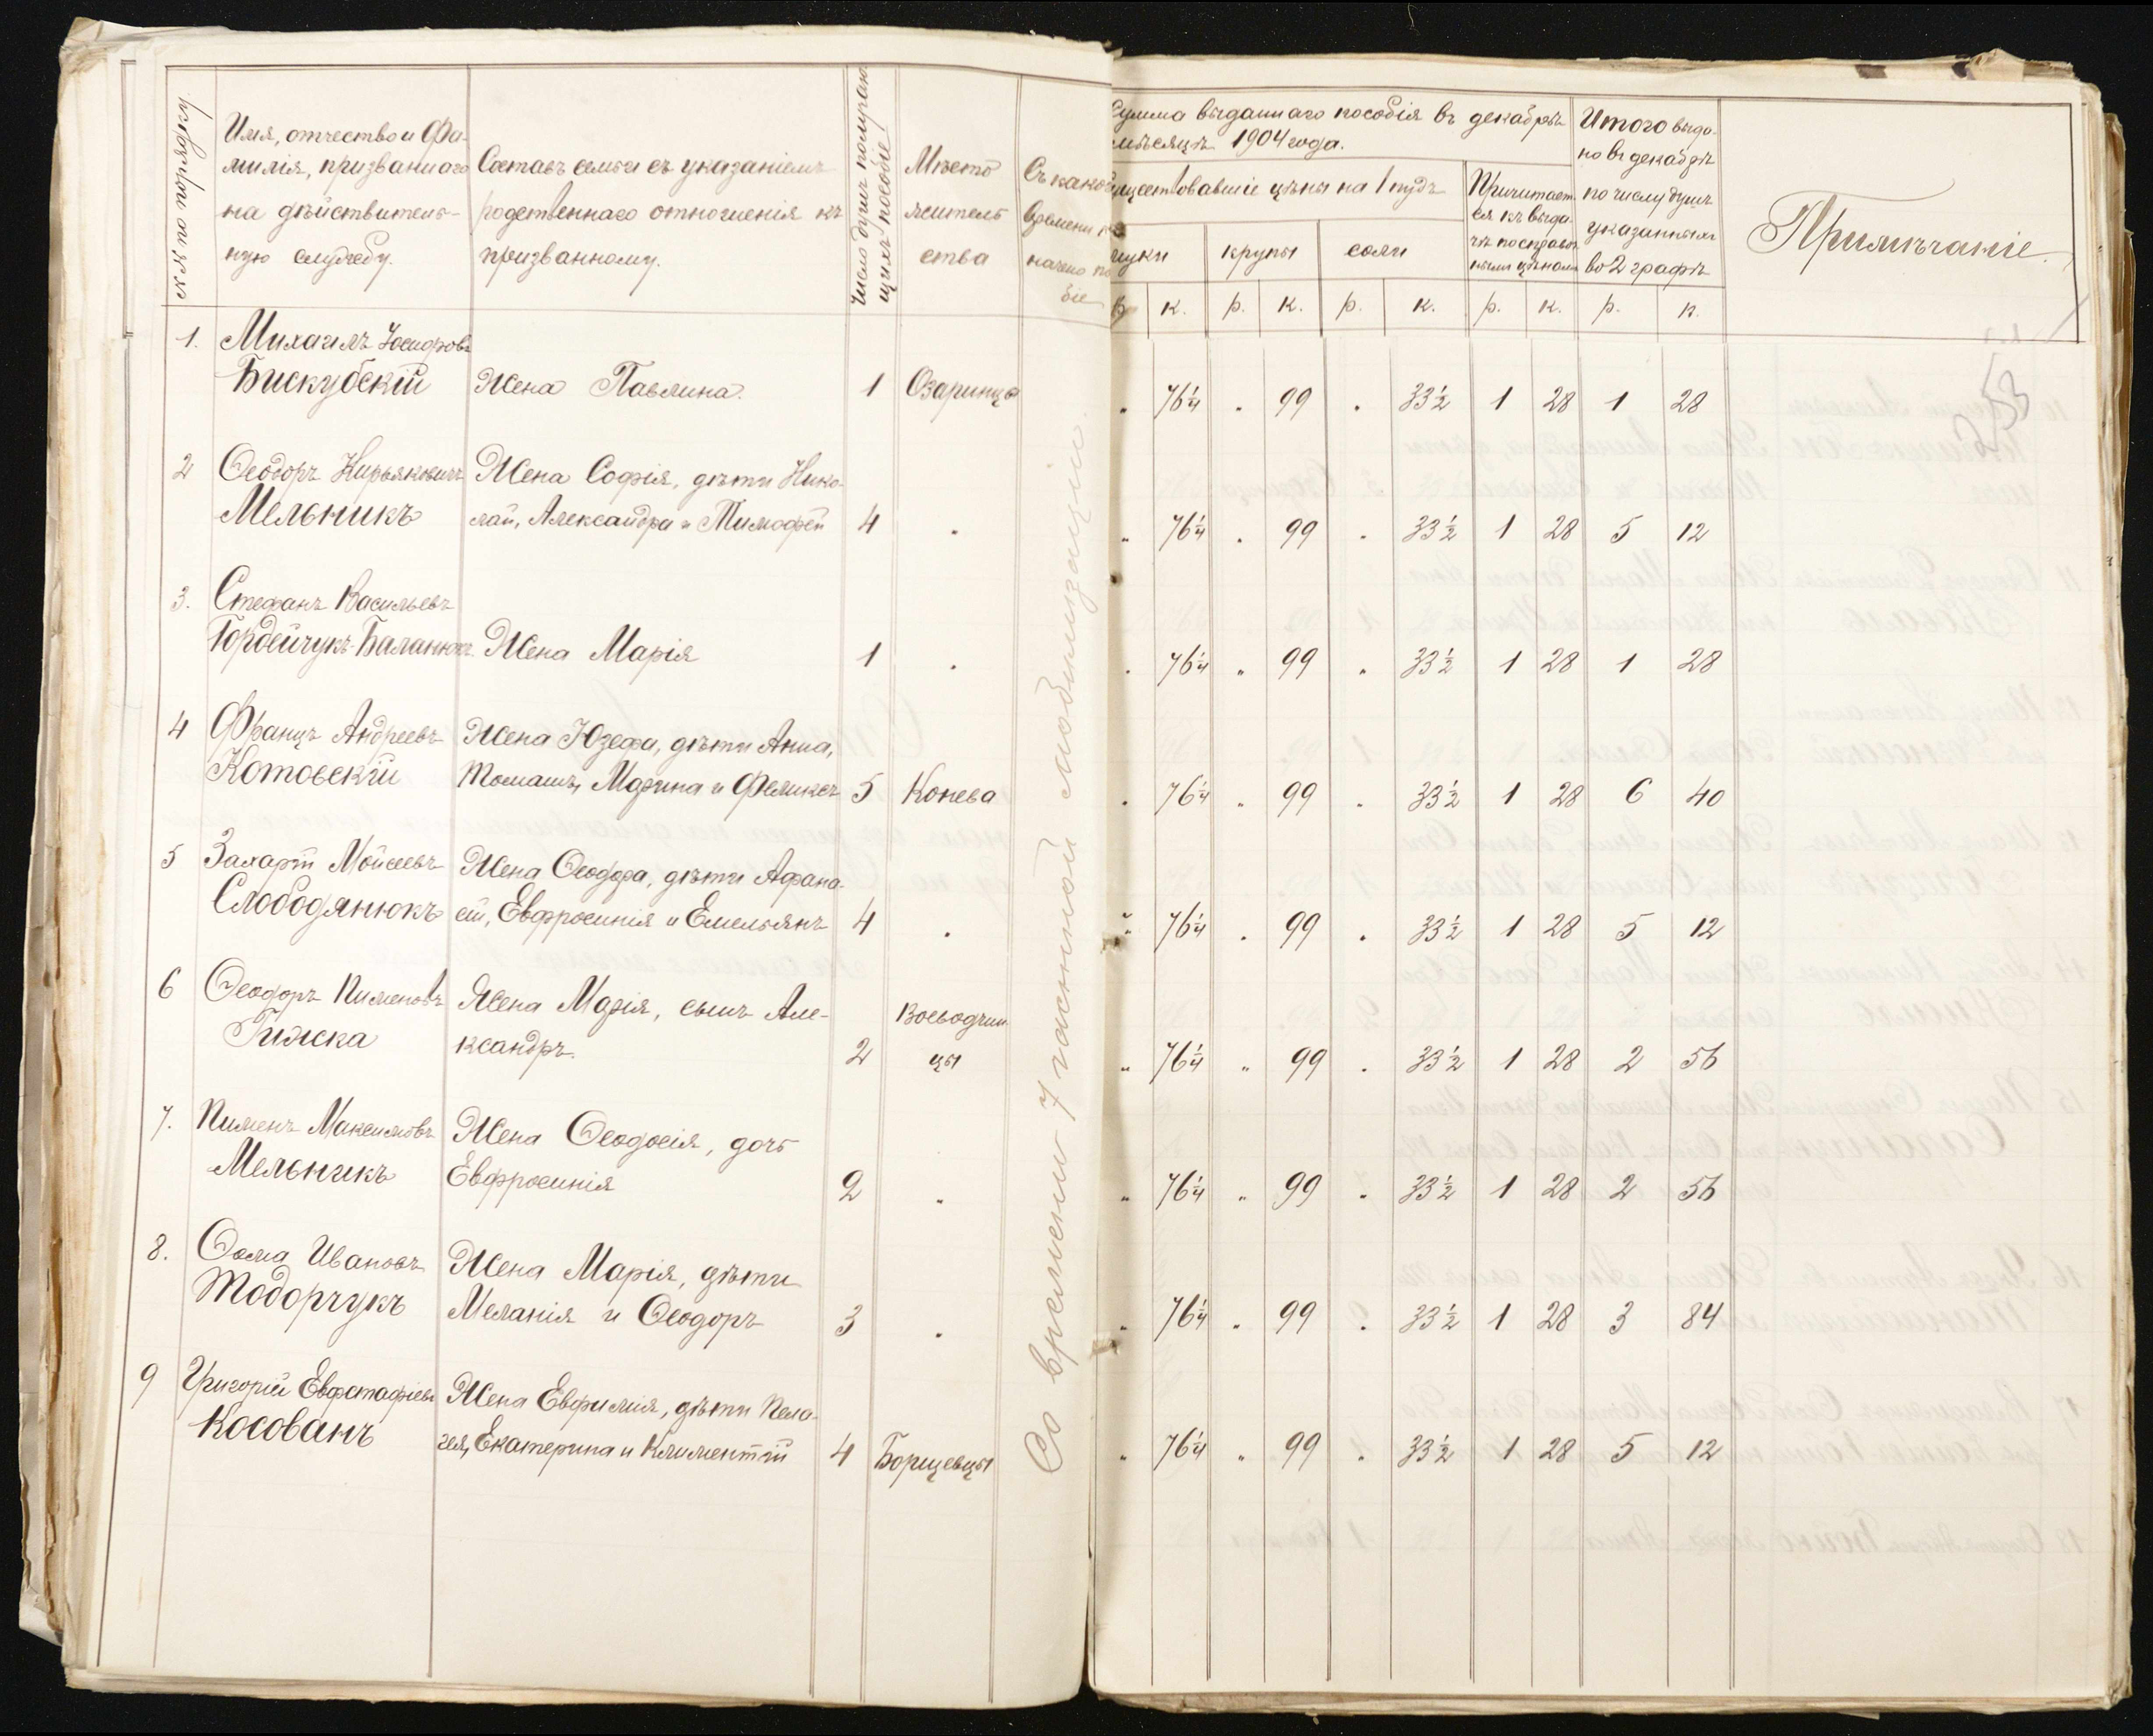 №№ по порядку
Имя, отчество и фа-
милія, призваннаго
на действитель-
ную службу.
Составъ семьи съ указаніемъ
родственнаго отношенія къ
призванному.
Число душъ получаю-
щихъ пособіе
Место
житель
ства
Съ како
времени
начено по
біе
Сумма выданнаго пособія въ декабрѣ
мѣсяцѣ 1904 года.
ществовавшіе цѣны на 1 пудъ
муки
крупы
соли
Причитает
ся къ выда
чѣ по справоч
нымъ цѣнамъ
Итого выда-
но въ декабрѣ
по числу душъ
указанныхъ
во 2 графѣ
Примѣчаніе.
р. к. р. к. р. к. р. к. р. к.
253
1. Михаилъ Іосифовъ
Бискубскій Жена Павлина. 1 Озаринцы „ 76¼ „ 99 „ 33½ 1 28 1 28
2 Ѳеодоръ Кирьяковичъ Жена Софія, дѣти Нико-
Мельникъ лай, Александра и Тимофей 4 „ „ 76¼ „ 99 „ 33½ 1 28 5 12
3. Стефанъ Васильевъ
Гордейчукъ-Баланюкъ Жена Марія 1 „ „ 76¼ „ 99 „ 33½ 1 28 1 28
4 Францъ Андреевъ Жена Юзефа, дѣти Анна,
Котовскій Томашъ, Марина и Феликсъ 5 Конева „ 76¼ „ 99 „ 33½ 1 28 6 40
5 Захарій Мойсеевъ Жена Ѳеодора, дѣти Афана-
Слободянюкъ сій, Евфросинія и Емельянъ 4 „ „ 76¼ „ 99 „ 33½ 1 28 5 12
6 Ѳеодоръ Пименовъ Жена Марія, сынъ Але- Воеводчин
Гижска ксандръ. 2 цы „ 76¼ „ 99 „ 33½ 1 28 2 56
7. Пименъ Максимовъ Жена Ѳеодосія, дочь
Мельникъ Евфросинія 2 „ „ 76¼ „ 99 „ 33½ 1 28 2 56
8. Ѳома Ивановъ Жена Марія, дѣти
Тодорчукъ Меланія и Ѳеодоръ 3 „ „ 76¼ „ 99 „ 33½ 1 28 3 84
9 Григорій Евфстафіевъ Жена Евфимія, дѣти Пела-
Косованъ гея, Екатерина и Климентій 4 Борщевцы „ 76¼ „ 99 „ 33½ 1 28 5 12
Со времени 7 частной мобилизаціи.